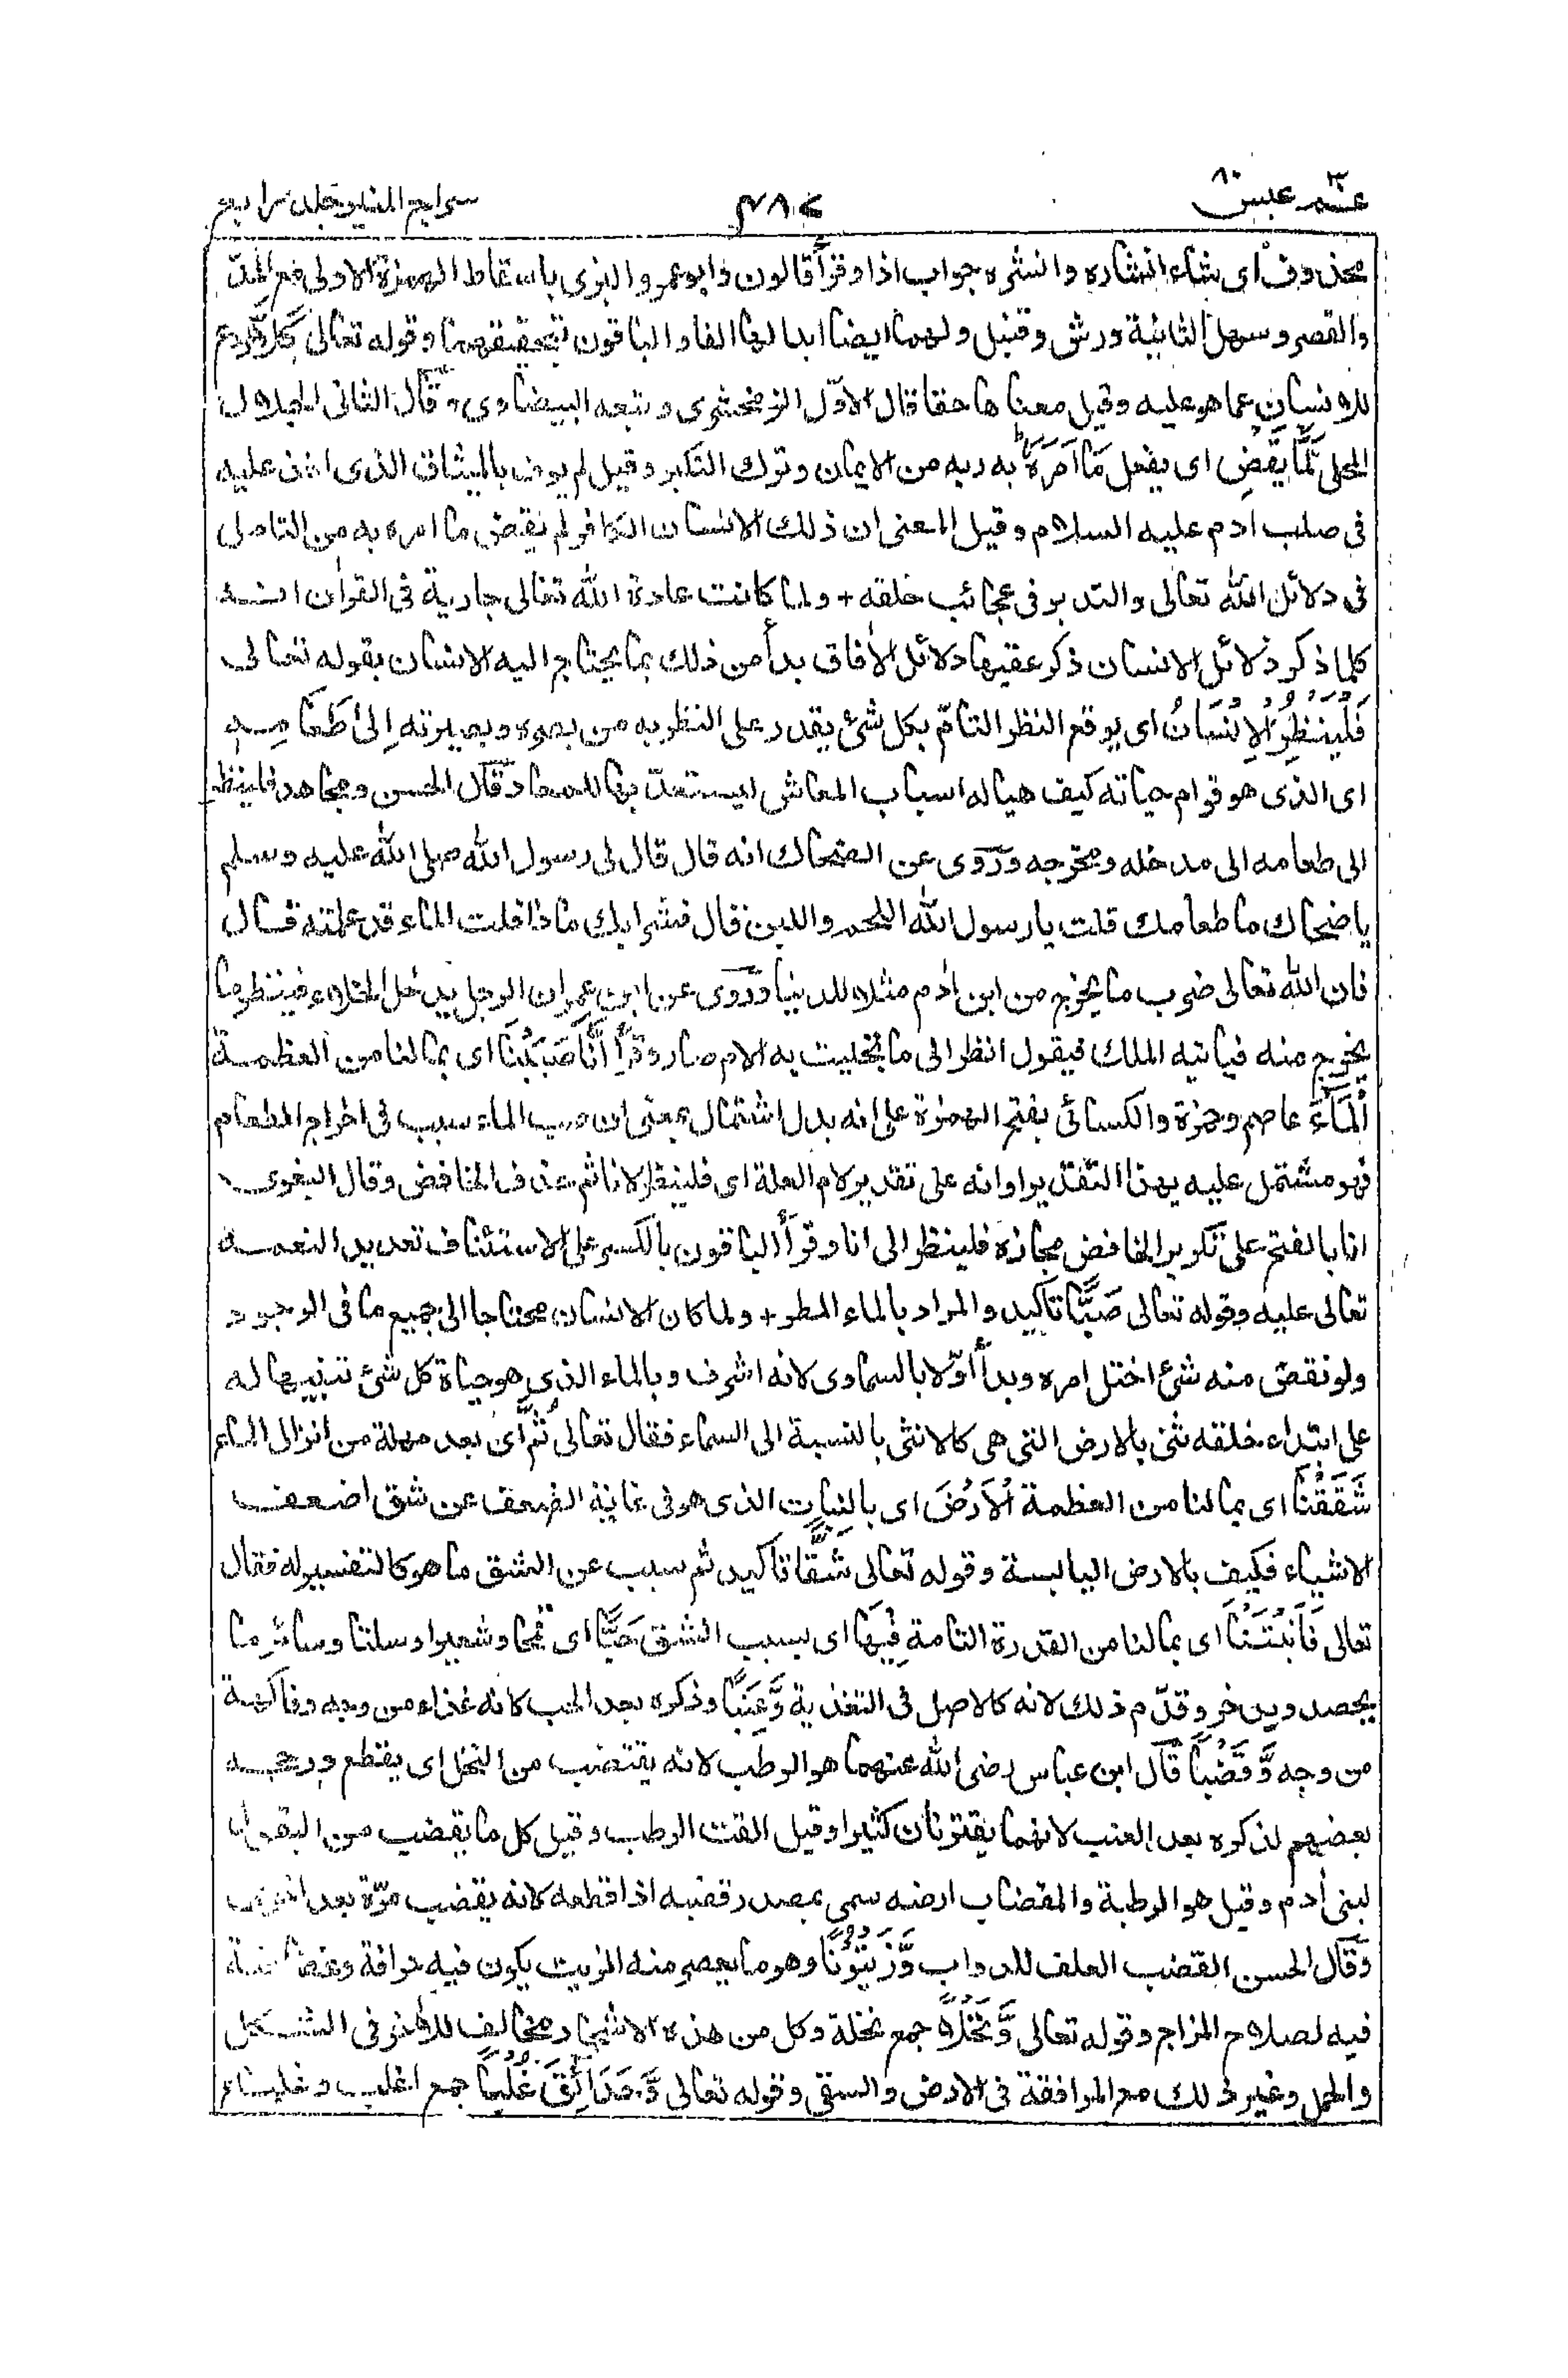 عـــم ٣٠ عبس ٨٠
٤٨٧
سراج المنير جلد رابع
محذوف اى شاء انشاره وانشره جواب اذا وقرأ قالون وابو عمرو والبزى باسقاط الهمزة الاولى مع المدّ
والقصر وسهل الثانية ورش وقنبل ولهما ايضا ابدالها الفا والباقون بتحقيقهما وقوله تعالى كَلَّا ردع
للانسان عما هو عليه وقيل معناها حقا قال الاوّل الزمخشرى وتبعه البيضاوى وقال الثانى الجلال
المحلى لَمَّا يَقْضِ اى يفعل مَا اَمَرَهٗ به ربه من الايمان وترك التكبر وقيل لم يوف بالميثاق الذى اخذ عليه
فى صلب ادم عليه السلام وقيل المعنى ان ذلك الانسان الكافر لم يقض ما امره به من التامل
فى دلائل الله تعالى والتدبر فى عجائب خلقه + ولما كانت عادة الله تعالى جارية فى القرأن انه
كلما ذكر دلائل الانسان ذكر عقيبها دلائل الأفاق بدأ من ذلك بما يحتاج اليه الانسان بقوله تعالى
فَلْيَنْظُرِ الْاِنْسَانُ اى يوقع النظر التامّ بكل شئ يقدر على النظر به من بصره وبصيرته اِلٰى طَعَامِهٖ
اى الذى هو قوام حياته كيف هياله اسباب المعاش ليستعدّ بها للمعاد وقال الحسن ومجاهد فلينظر
الى طعامه الى مدخله ومخرجه وروى عن الضحاك انه قال قال لى رسول الله صلى الله عليه وسلم
ياضحاك ما طعامك قلت يا رسول الله اللحم واللبن قال فشرابك ماذا قلت الماء قد علمته قال
فان الله تعالى ضرب ما يخرج من ابن أدم مثلا للدنيا وروى عن ابن عمر ان الرجل يدخل الخلاء فينظر ما
يخرج منه فياتيه الملك فيقول انظر الى ما بخلت به الام صار وقرأ اَنَّا صَبَبْنَا اى بما لنا من العظمة
الْمَآءَ عاصم وحمزة والكسائى بفتح الهمزة على انه بدل اشتمال بمعنى ان صب الماء سبب فى اخراج الطعام
فهو مشتمل عليه بهذا التقدير او انه على تقدير لام العلة اى فلينظر لانا ثم حذف الخافض وقال البغوى
انا بالفتح على تكرير الخافض مجازه فلينظر الى انا وقرأ الباقون بالكسر على الاستئناف تعديد النعمه
تعالى عليه وقوله تعالى صَبًّا تاكيد والمراد بالماء المطر + ولما كان الانسان محتاجا الى جميع ما فى الوجود
ولو نقض منه شئ اختل امره وبدأ اوّلا بالسماوى لانه اشرف وبالماء الذى هو حياة كل شئ تنبيها له
على ابتداء خلقه ثنى بالارض التى هى كالانثى بالنسبة الى السماء فقال تعالى ثُمَّ اى بعد مهلة من انزال الماء
شَقَقْنَا اى بما لنا من العظمة الْاَرْضَ اى بالنبات الذى هو فى غاية الضعف عن شق اضعف
الاشياء فكيف بالارض اليابسة وقوله تعالى شَقًّا تاكيد ثم سبب عن الشق ما هو كالتفسير له فقال
تعالى فَاَنْبَتْنَا اى بما لنا من القدرة التامة فِيْهَا اى بسبب الشق حَبًّا اى قمحا وشعيرا وسلتا وسائر ما
يحصد ويدخر وقدّم ذلك لانه كالاصل فى التغذية وَّعِنَبًا وذكره بعد الحب لانه غذاء من وجه وفاكهة
من وجه وَّقَضْبًا قال ابن عباس رضى الله عنهما هو الرطب لانه يقتضب من النخل اى يقطع ورجحه
بعضهم لذكره بعد العنب لانهما يقترنان كثيرا وقيل القت الرطب وقيل كل ما يقضب من البقول
لبنى أدم وقيل هو الرطبة والمقضاب ارضه سمى بمصدر قضبه اذا قطعه لانه يقضب مرّة بعد اخرى
وقال الحسن القضب العلف للدواب وَّزَيْتُوْنًا وهو ما يعصر منه الزيت يكون فيه حرافة وغضاضة
فيه لصلاح المزاج وقوله تعالى وَّنَخْلًا جمع نخلة وكل من هذه الاشجار مخالف للأخر فى الشكل
والحمل وغير ذلك مع الموافقة فى الارض والسقى وقوله تعالى وَّحَدَآئِقَ غُلْبًا جمع اغلب وغلباء